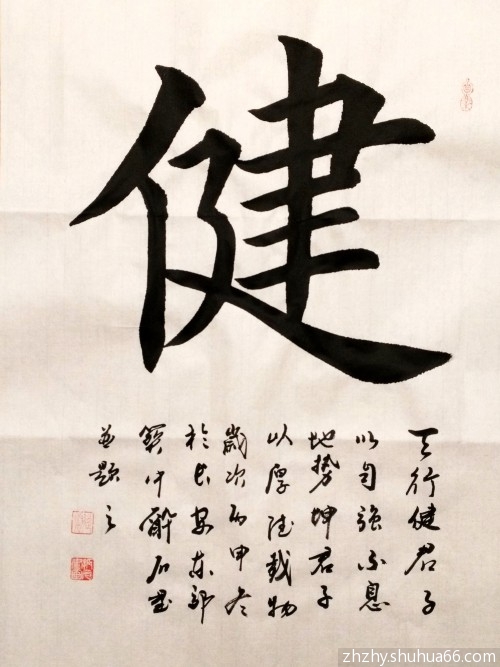 健
天行健君子
以自强不息
地势坤君子
以厚德载物
歲次丙申冬
於长安东郭
醉石
並题之
zhzhy.shuhua66.com